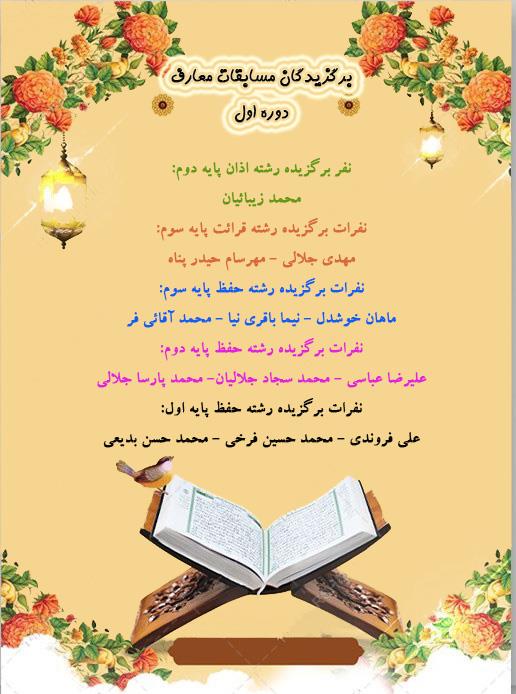 برگزیدگان مسابقات معارف
دوره اول
نفر برگزیده رشته اذان پایه دوم:
محمد زیبائیان
نفرات برگزیده رشته قرائت پایه سوم:
مهدی جلالی - مهرسام حیدر پناه
نفرات برگزیده رشته حفظ پایه سوم:
ماهان خوشدل - نیما باقری نیا - محمد آقائی فر
نفرات برگزیده رشته حفظ پایه دوم:
علیرضا عباسی - محمد سجاد جلالیان- محمد پارسا جلالی
نفرات برگزیده رشته حفظ پایه اول:
علی فروندی - محمد حسین فرخی - محمد حسن بدیعی